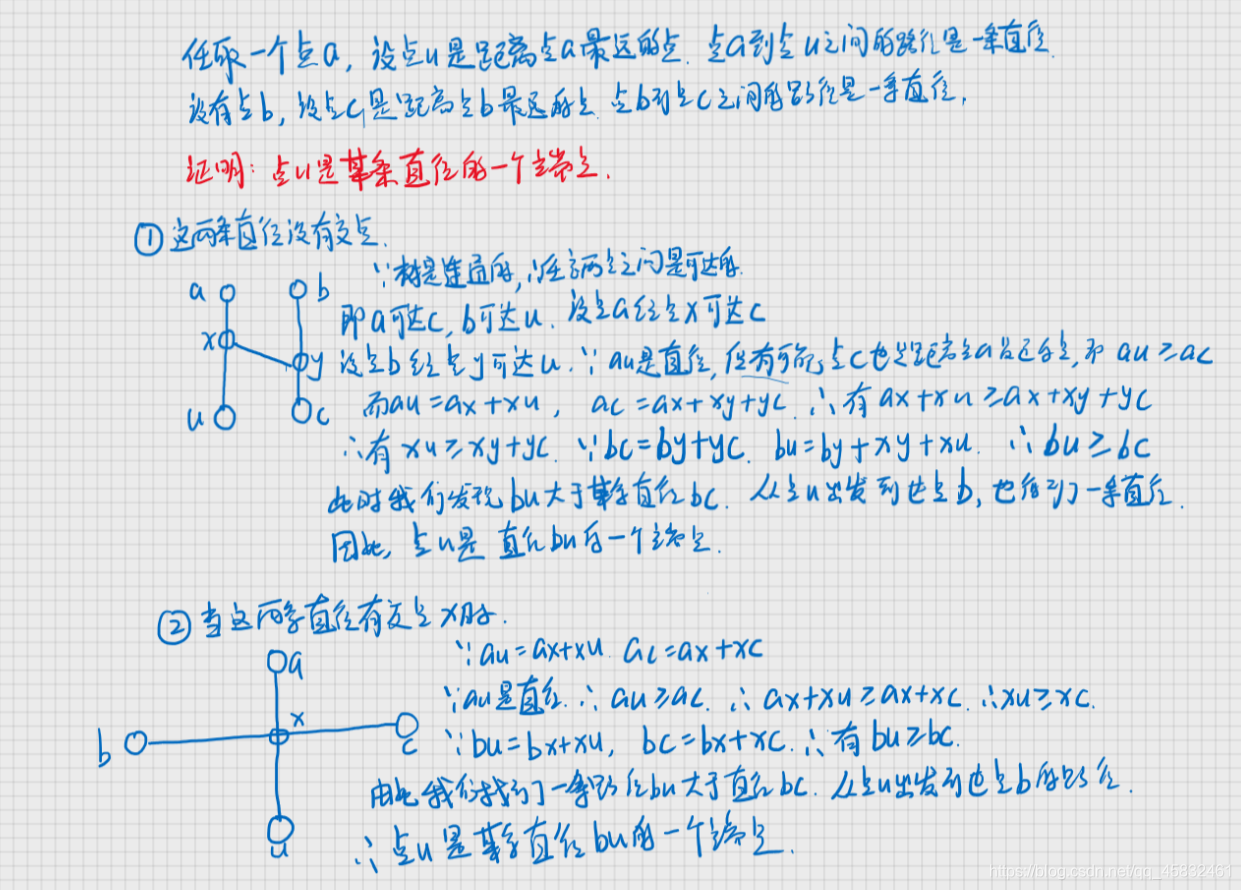 任取一个点a,设点u是距离点a最远的点.点a到点u之间的路径是一条直径.
设有点b,设点c是距离点b最远的点.点b到点c之间的路径是一条直径.
证明:点u是某条直径的一个端点.
①这两条直径没有交点.
∵树是连通的,∴任意两点之间是可达的.
即a可达c,b可达u.设点a经点x可达c
设点b经点y可达u.∵au是直径,但有可能点c也是距离点a最远的点,即 au≥ac
而au=ax+xu, ac=ax+xy+yc.∴有ax+xu≥ax+xy+yc
∴有xu≥xy+yc.∵bc=by+yc. bu=by+xy+xu. ∴bu≥bc
此时我们发现bu大于某条直径bc. 从点u出发到达点b,也得到了一条直径.
因此,点u是 直径bu的一个端点.
a
b
x
y
u
c
②当这两条直径有交点x时.
∵au=ax+xu. ac=ax+xc
∵au是直径.∴au≥ac.∴ax+xu≥ax+xc.∴xu≥xc.
∵bu=bx+xu, bc=bx+xc.∴有bu≥bc.
由此我们找到了一条路径bu大于直径bc. 从点u出发到达点b的路径.
∴点u是某条直径bu的一个端点.
a
x
b
c
u
https://blog.csdn.net/qq_45832461